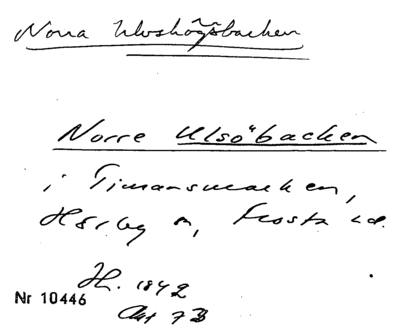 Norra Ulvshögsbacken
Norre Ulsöbacken
i Timansmarken,
Hörby sn, Frosta hd.
H. 1842
Akt 7 B
Nr 10446